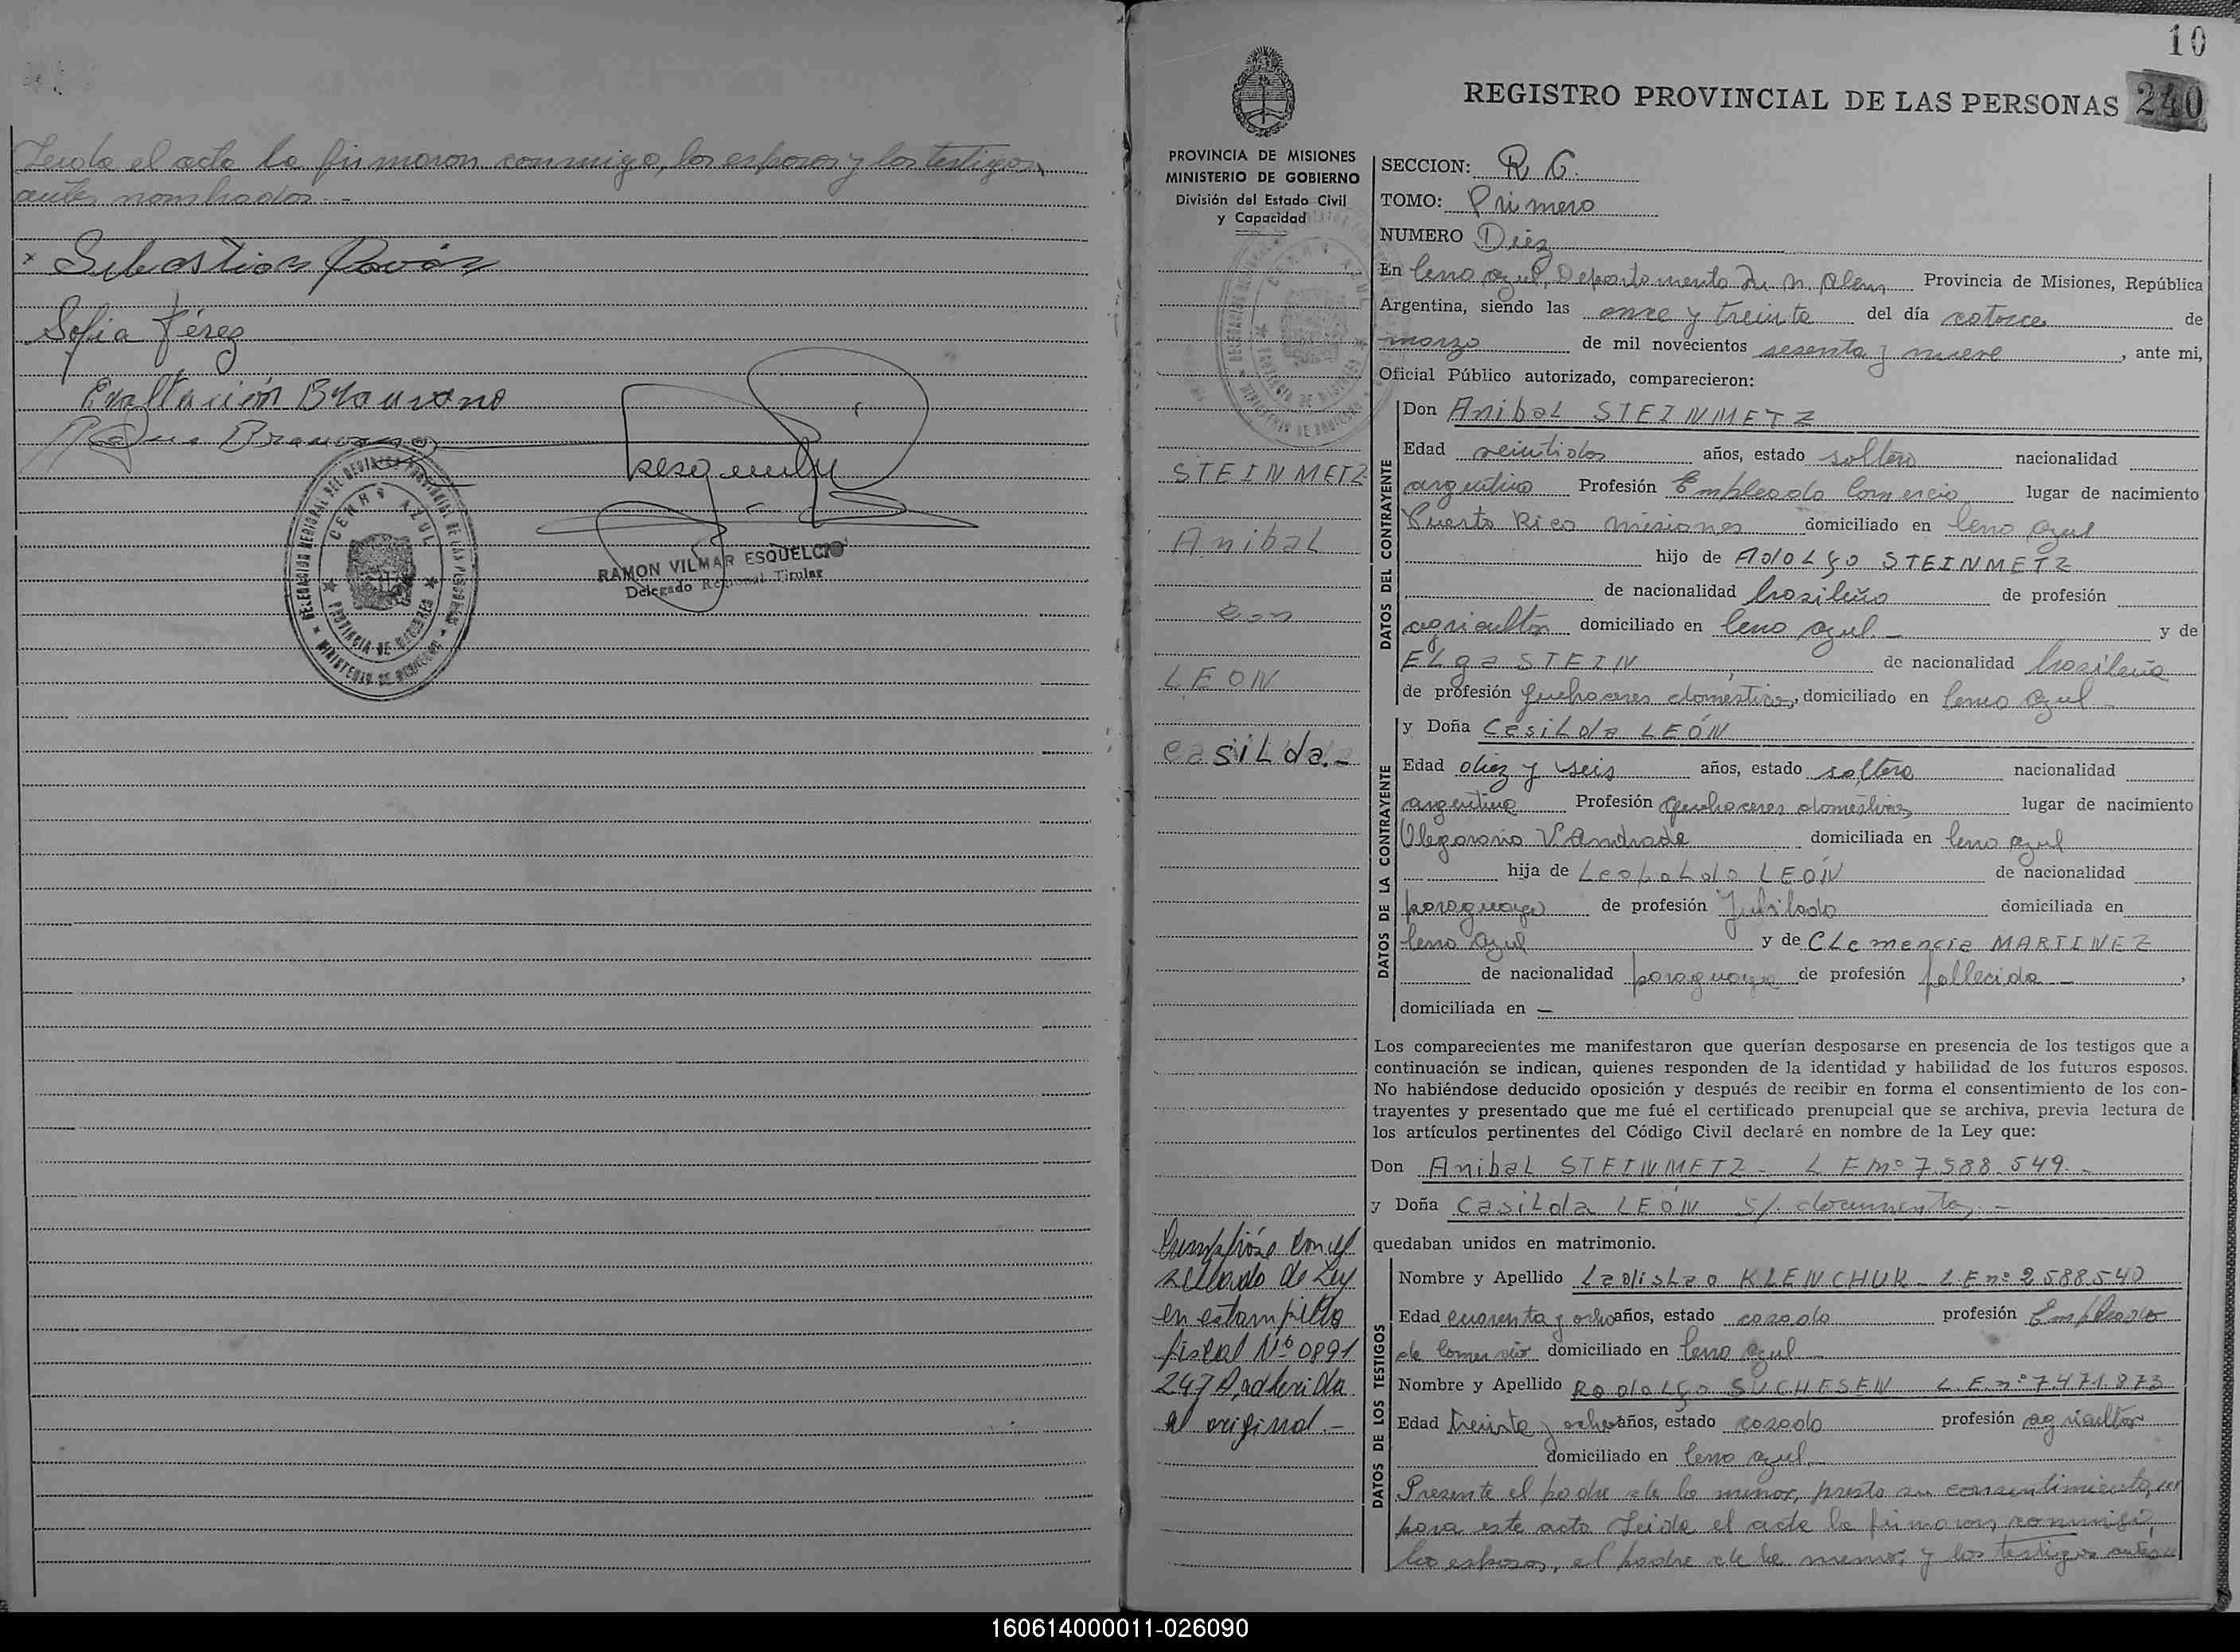 Leida el acta la firmaron conmigo, los esposos y los testigos
antes nombrados.-
x Sebastian
Sofia
Exaltación
RAMON VILMAR ESQUELCIO
Delegado Regional Titular
DELEGACION REGIONAL DEL REGISTRO PROVINCIAL DE LAS PERSONAS
CERRO AZUL
PROVINCIA DE MISIONES
MINISTERIO DE GOBIERNO
10
REGISTRO PROVINCIAL DE LAS PERSONAS 240
PROVINCIA DE MISIONES
MINISTERIO DE GOBIERNO
División del Estado Civil
y Capacidad
STEINMETZ
Anibal
con
LEON
casilda.-
Cumplióse con el
sellado de Ley
en estampilla
fiscal Nº 0891
247 A, adherida
al original.-
SECCION: R G.
TOMO: Primero
NUMERO Diez
En Cerro Azul, Departamento L. N. Alem Provincia de Misiones, República
Argentina, siendo las once y treinta del día catorce de
marzo de mil novecientos sesenta y nueve, ante mi,
Oficial Público autorizado, comparecieron:
DATOS DEL CONTRAYENTE
Don Anibal STEINMETZ
Edad veintidos años, estado soltero nacionalidad
argentino Profesión Empleado Comercio lugar de nacimiento
Puerto Rico misiones domiciliado en Cerro Azul
hijo de Adolfo STEINMETZ
de nacionalidad brasileño de profesión
agricultor domiciliado en Cerro Azul.- y de
Elga STEIN, de nacionalidad brasileña
de profesión quehaceres domesticos, domiciliado en Cerro Azul.-
DATOS DE LA CONTRAYENTE
y Doña Casilda LEÓN
Edad diez y seis años, estado soltera nacionalidad
argentina Profesión Quehaceres domésticos lugar de nacimiento
Olegario V Andrade domiciliada en Cerro Azul
hija de Leopoldo LEÓN de nacionalidad
paraguayo de profesión Jubilado domiciliada en
Cerro Azul y de Clemencia MARTINEZ
de nacionalidad paraguaya de profesión fallecida.-,
domiciliada en -
Los comparecientes me manifestaron que querían desposarse en presencia de los testigos que a
continuación se indican, quienes responden de la identidad y habilidad de los futuros esposos.
No habiéndose deducido oposición y después de recibir en forma el consentimiento de los con-
trayentes y presentado que me fué el certificado prenupcial que se archiva, previa lectura de
los artículos pertinentes del Código Civil declaré en nombre de la Ley que:
Don Anibal STEINMETZ - L E nº 7.588.549.-
y Doña Casilda LEÓN S/. documentos.-
quedaban unidos en matrimonio.
DATOS DE LOS TESTIGOS
Nombre y Apellido Ladislao KLENCHUK - L.E nº 2588540
Edad cuarenta y ocho años, estado casado profesión Empleado
de Comercio domiciliado en Cerro Azul.-
Nombre y Apellido Rodolfo SUCHESEN L.E. nº 7.471.873
Edad treinta y ocho años, estado casado profesión agricultor
domiciliado en Cerro Azul.-
Presente el padre de la menor, presta su consentimiento
para este acto Leida el acta la firmaron conmigo,
los esposos, el padre de la menor, y los testigos antes
160614000011-026090